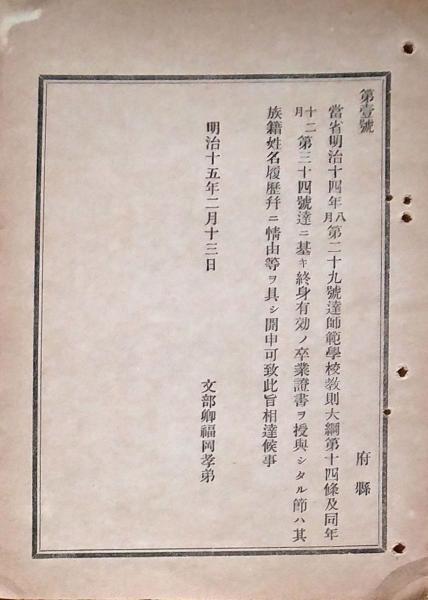 第壹號
府縣
當省明治十四年八月第二十九號達師範學校敎則大綱第十四條及同年
十二月第三十四號達ニ基キ終身有効ノ卒業證書ヲ授與シタル節ハ其
族籍姓名履歷幷ニ情由等ヲ具シ開申可致此旨相達候事
明治十五年二月十三日
文部卿福岡孝弟